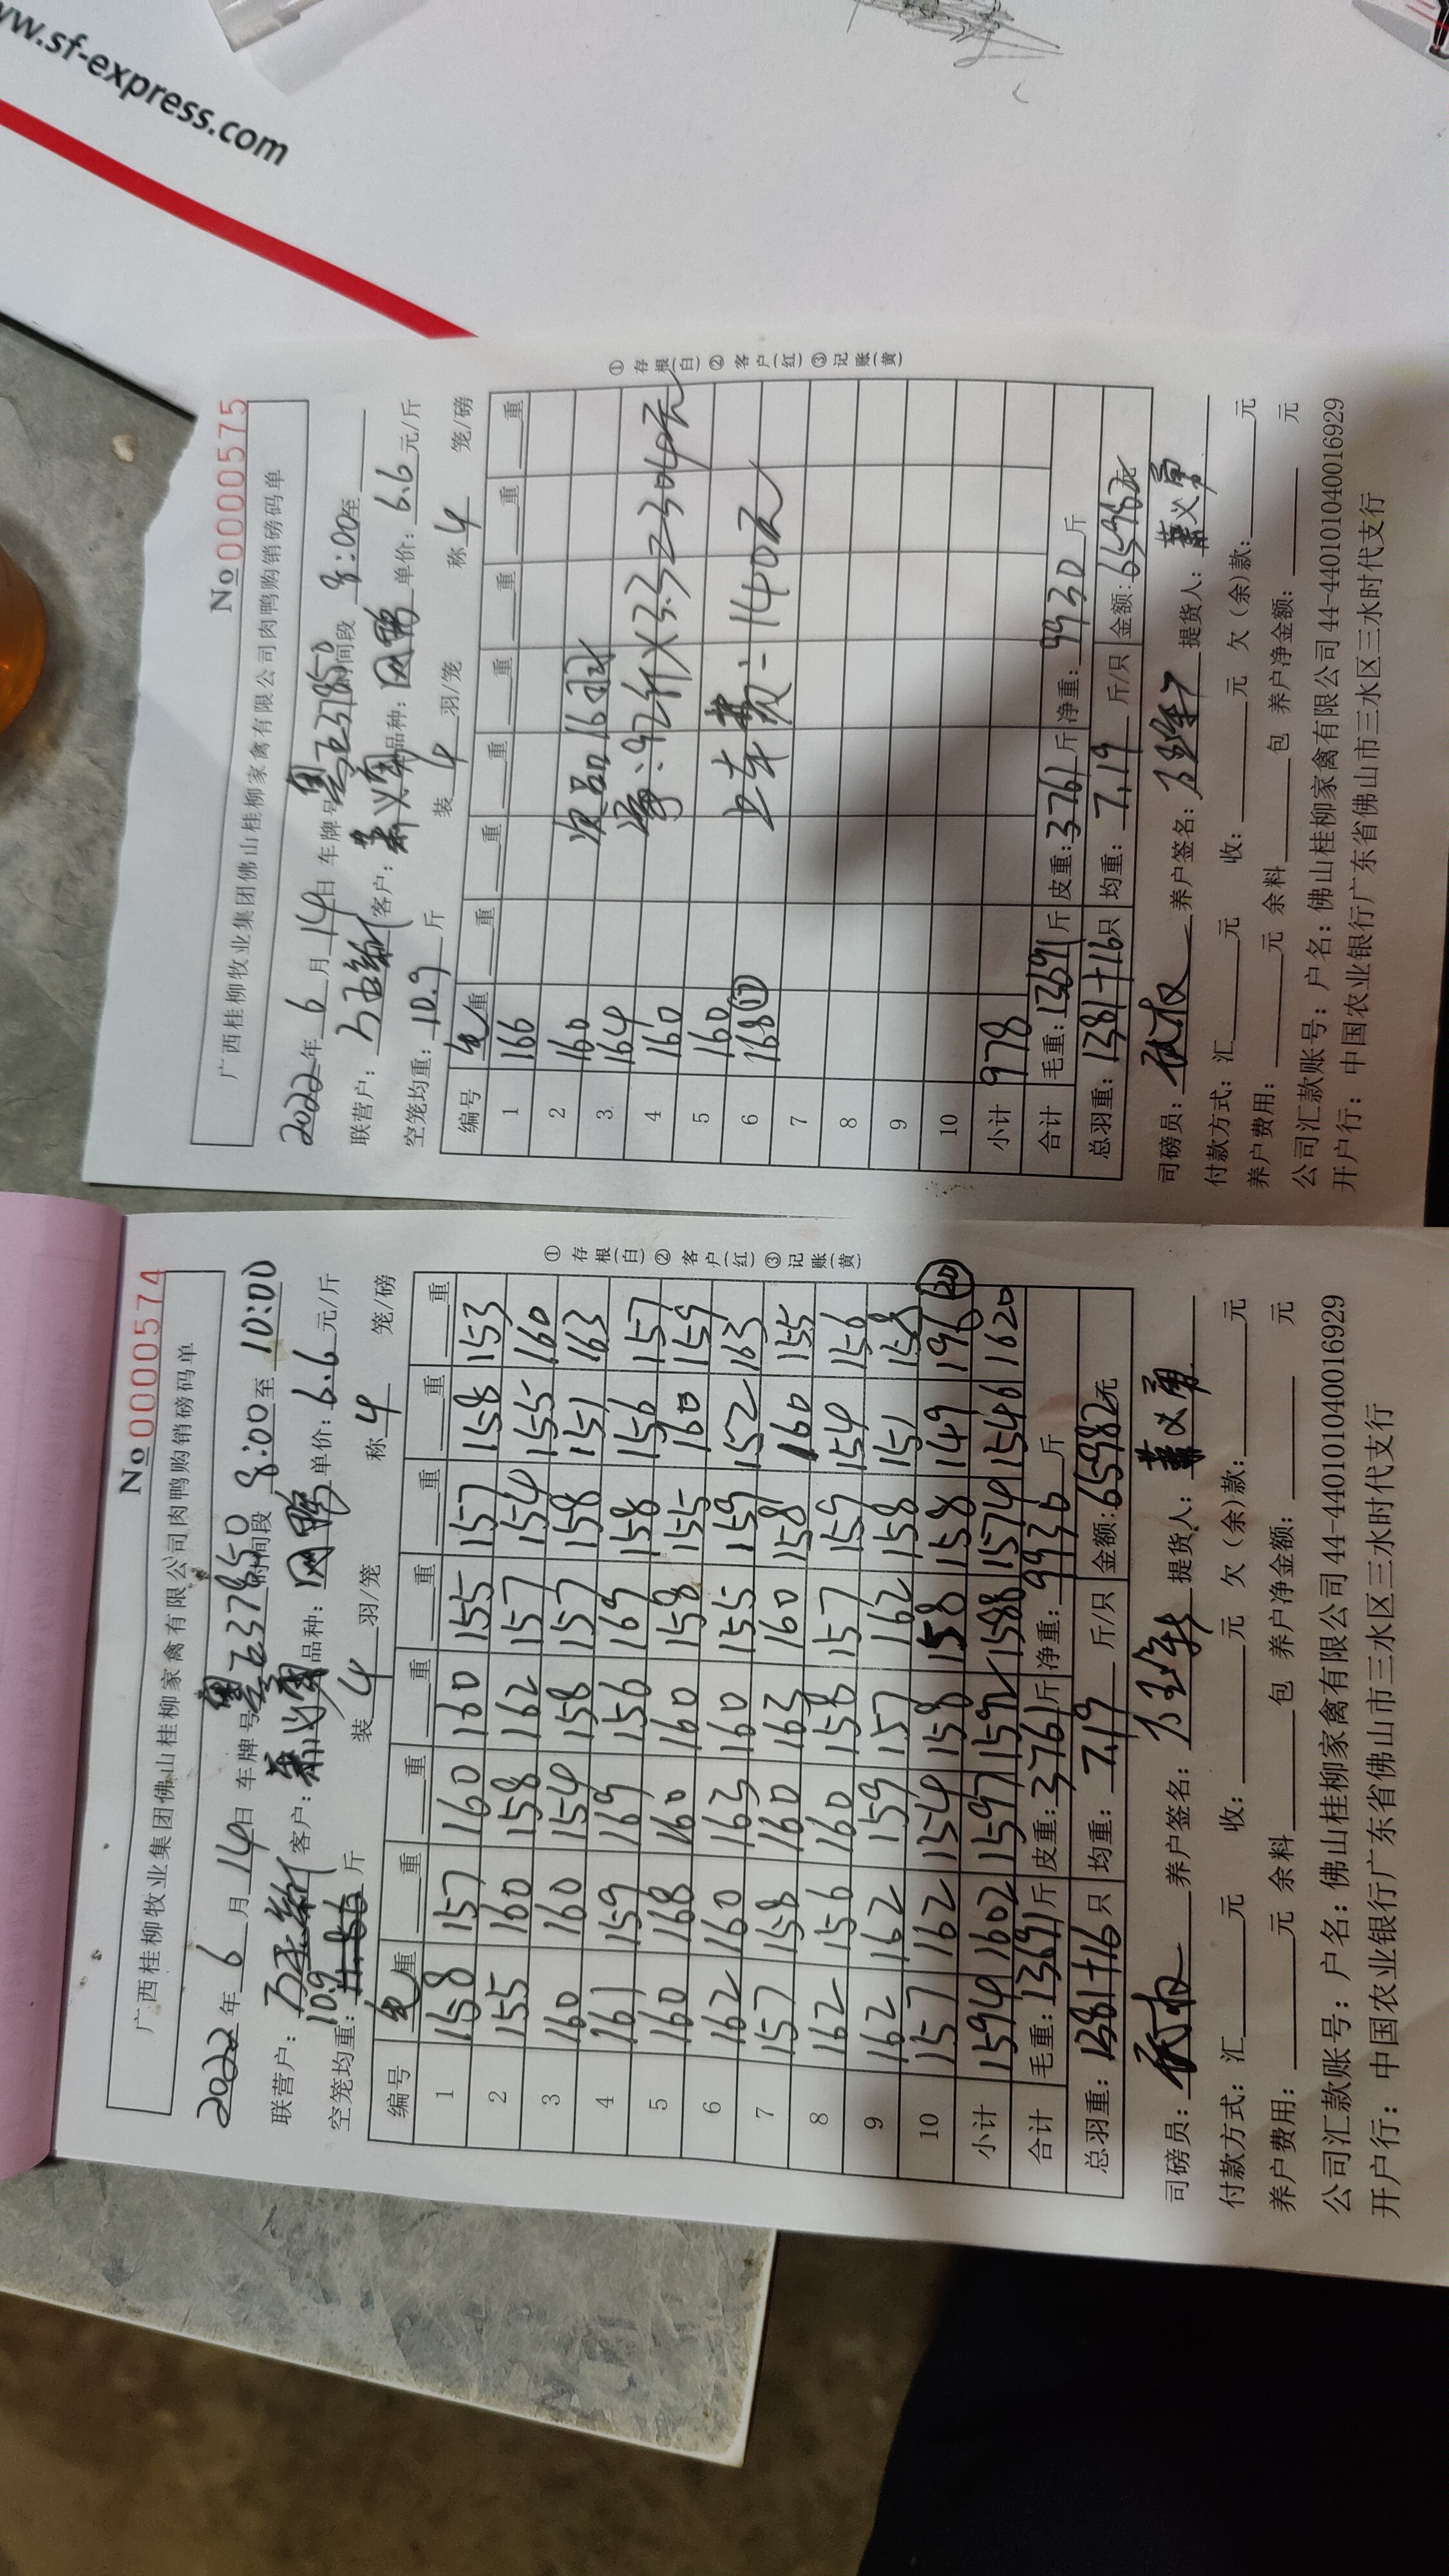 www.sf-express.com
No 0000574
广西桂柳牧业集团佛山桂柳家禽有限公司肉鸭购销磅码单
2022年 6 月 14日 车牌号 时间段 8:00至 10:00
联营户: 客户: 品种: 单价: 6.6 元/斤
空笼均重: 10.9 斤 装 4 羽/笼 称 4 笼/磅
编号 毛重 重 重 重 重 重 重 重
1 158 157 160 160 155 157 158 153
2 155 160 158 162 157 154 155 160
3 160 160 154 158 157 158 151 163
4 161 159 169 156 169 158 156 157
5 160 168 160 160 158 155 160 159
6 162 160 163 160 155 159 152 163
7 157 158 160 163 160 158 160 155
8 162 156 160 158 157 159 154 156
9 162 162 159 157 162 158 151 158
10 157 162 154 158 158 158 149 196 (20)
小计 1594 1602 1597 1592 1588 1574 1546 1620
合计 毛重: 13691斤 皮重: 3761斤 净重: 9930 斤
总羽重: 1381+16 只 均重: 7.19 斤/只 金额: 65982元
司磅员: 养户签名: 提货人:
付款方式: 汇 元 收: 元 欠(余)款: 元
养户费用: 元 余料 包 养户净金额: 元
公司汇款账号: 户名: 佛山桂柳家禽有限公司 44-440101040016929
开户行: 中国农业银行广东省佛山市三水区三水时代支行
① 存根(白) ② 客户(红) ③ 记账(黄)
No 0000575
广西桂柳牧业集团佛山桂柳家禽有限公司肉鸭购销磅码单
2022年 6 月 14日 车牌号 时间段 8:00至
联营户: 客户: 品种: 单价: 6.6 元/斤
空笼均重: 10.9 斤 装 4 羽/笼 称 4 笼/磅
编号 毛重 重 重 重 重 重 重 重
1 166
2 160 次品16羽
3 164 重:92斤×3.3=304元
4 160
5 160 上车费=1140元
6 168 (17)
7
8
9
10
小计 978
合计 毛重: 13691斤 皮重: 3761斤 净重: 9930 斤
总羽重: 1381+16只 均重: 7.19 斤/只 金额: 65982元
司磅员: 养户签名: 提货人:
付款方式: 汇 元 收: 元 欠(余)款: 元
养户费用: 元 余料 包 养户净金额: 元
公司汇款账号: 户名: 佛山桂柳家禽有限公司 44-440101040016929
开户行: 中国农业银行广东省佛山市三水区三水时代支行
① 存根(白) ② 客户(红) ③ 记账(黄)